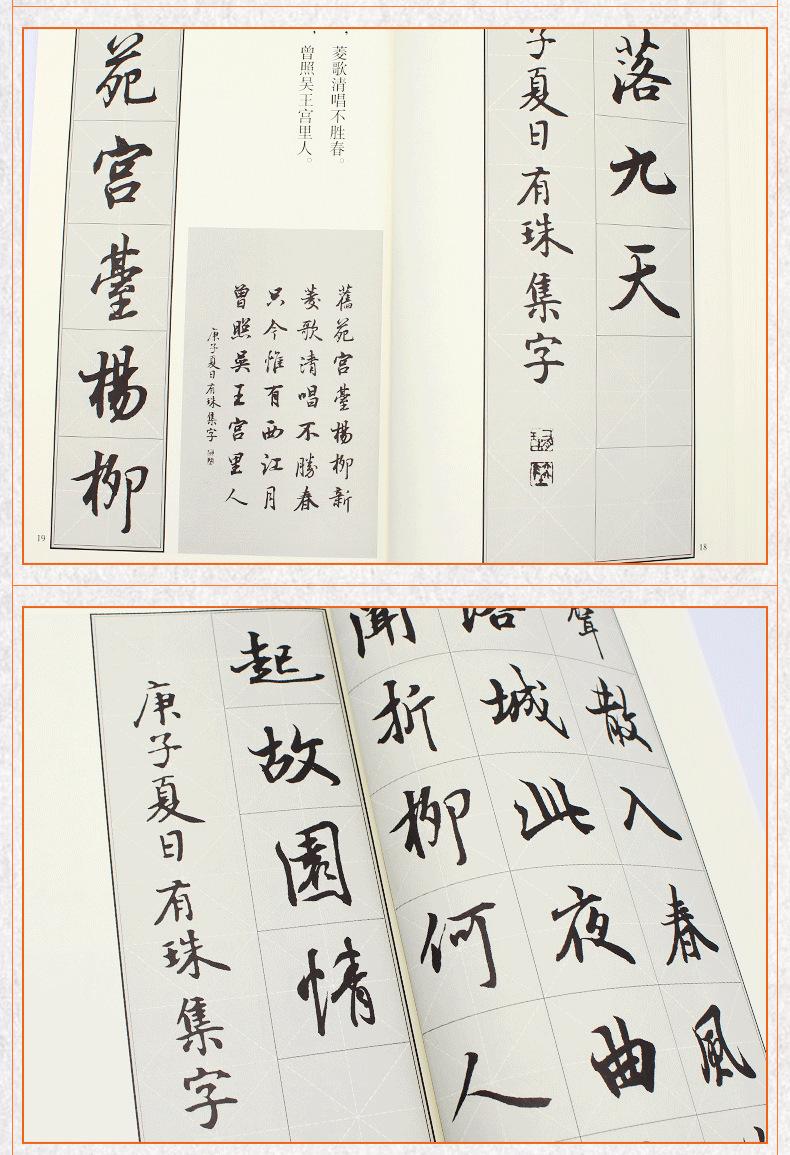 落九天
子夏日有珠集字
18
，菱歌清唱不胜春。
，曾照吴王宫里人。
舊苑宫臺楊柳新
菱歌清唱不勝春
只今惟有西江月
曾照吳王宫里人
庚子夏日有珠集字
苑宫臺楊柳
19
聲散入春風
落城此夜曲
聞折柳何人
起故園情
庚子夏日有珠集字